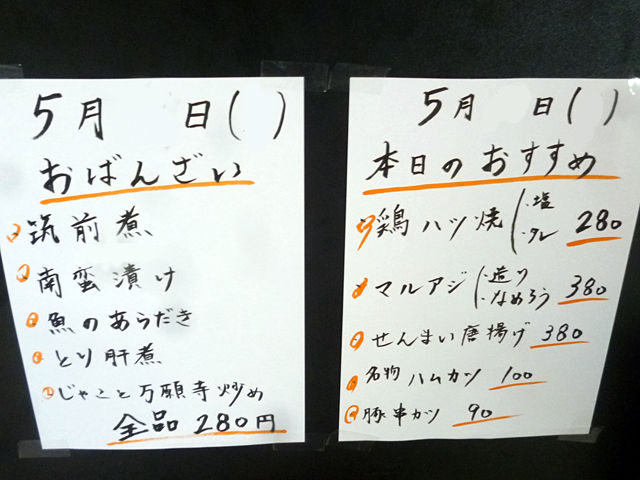 5月 日( )
おばんざい
筑前煮
南蛮漬け
魚のあらだき
とり肝煮
じゃこと万願寺炒め
全品 280円
5月 日( )
本日のおすすめ
鶏ハツ焼 ・塩 ・タレ 280
マルアジ ・造り ・なめろう 380
せんまい唐揚げ 380
名物 ハムカツ 100
豚串カツ 90